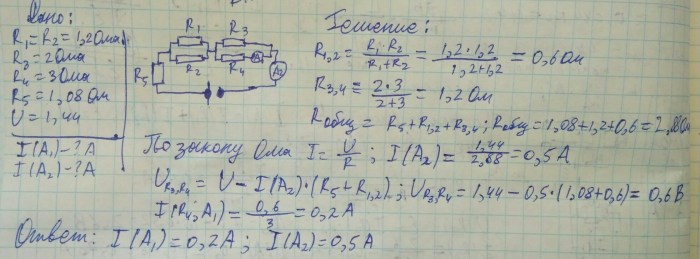 Дано:
R₁ = R₂ = 1,2 Ома
R₃ = 2 Ома
R₄ = 3 Ома
R₅ = 1,08 Ом
U = 1,44
I(A₁) - ? A
I(A₂) - ? A
R₁ R₃
R₂ R₄ A₁ A₂
R₅
Решение:
R₁,₂ = R₁ · R₂ / R₁ + R₂ = 1,2 · 1,2 / 1,2 + 1,2 = 0,6 Ом
R₃,₄ = 2 · 3 / 2 + 3 = 1,2 Ом
Rобщ = R₅ + R₁,₂ + R₃,₄ ; Rобщ = 1,08 + 1,2 + 0,6 = 2,88 Ом
По закону Ома I = U / R ; I(A₂) = 1,44 / 2,88 = 0,5 A
U R₃,R₄ = U - I(A₂) · (R₅ + R₁,₂) ; U R₃,R₄ = 1,44 - 0,5 · (1,08 + 0,6) = 0,6 В
I(R₄, A₁) = 0,6 / 3 = 0,2 A
Ответ: I(A₁) = 0,2 A ; I(A₂) = 0,5 A